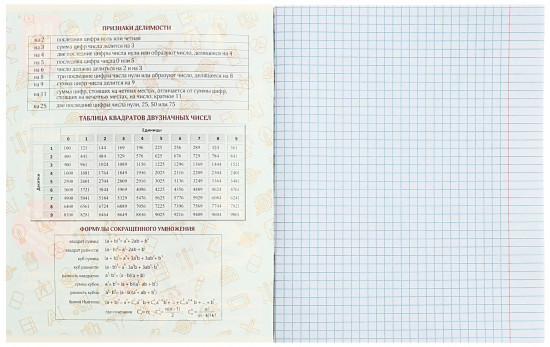 ПРИЗНАКИ ДЕЛИМОСТИ
на 2 последняя цифра ноль или четная
на 3 сумма цифр числа делится на 3
на 4 две последние цифры числа нули или образуют число, делящееся на 4
на 5 последняя цифра числа 0 или 5
на 6 число должно делиться на 2 и на 3
на 8 три последние цифры числа нули или образуют число, делящееся на 8
на 9 сумма цифр числа делится на 9
на 11 сумма цифр, стоящих на четных местах, отличается от суммы цифр,
стоящих на нечетных местах, на число, кратное 11
на 25 две последние цифры числа нули, 25, 50 или 75
ТАБЛИЦА КВАДРАТОВ ДВУЗНАЧНЫХ ЧИСЕЛ
Единицы
0 1 2 3 4 5 6 7 8 9
Десятки
1 100 121 144 169 196 225 256 289 324 361
2 400 441 484 529 576 625 676 729 784 841
3 900 961 1024 1089 1156 1225 1296 1369 1444 1521
4 1600 1681 1764 1849 1936 2025 2116 2209 2304 2401
5 2500 2601 2704 2809 2916 3025 3136 3249 3364 3481
6 3600 3721 3844 3969 4096 4225 4356 4489 4624 4761
7 4900 5041 5184 5329 5476 5625 5776 5929 6084 6241
8 6400 6561 6724 6889 7056 7225 7396 7569 7744 7921
9 8100 8281 8464 8649 8836 9025 9216 9409 9604 9801
ФОРМУЛЫ СОКРАЩЕННОГО УМНОЖЕНИЯ
квадрат суммы (a + b)²= a²+ 2ab + b²
квадрат разности (a - b)²= a²- 2ab + b²
куб суммы (a + b)³= a³+ 3a²b + 3ab²+ b³
куб разности (a - b)³= a³- 3a²b + 3ab²- b³
разность квадратов a²- b²= (a - b)(a + b)
сумма кубов a³+ b³= (a + b)(a²- ab + b²)
разность кубов a³- b³= (a - b)(a²+ ab + b²)
бином Ньютона
где сочетания